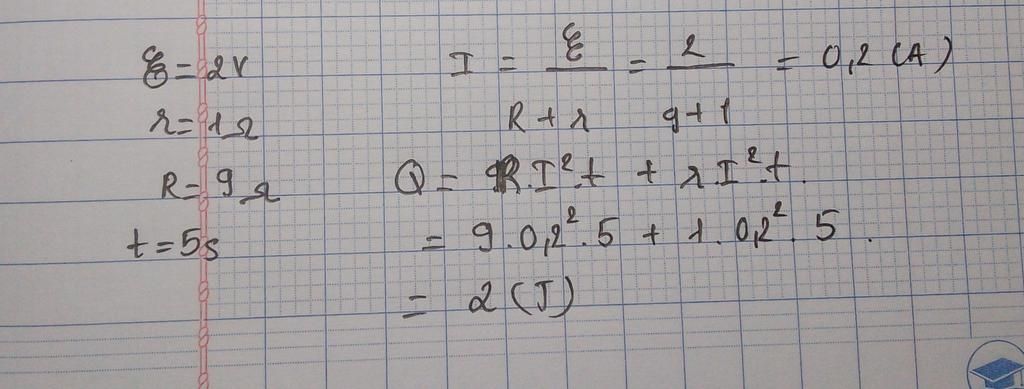 ξ = 2V
r = 1Ω
R = 9Ω
t = 5s
I = ξ / (R + r) = 2 / (9 + 1) = 0,2 (A)
Q = R.I².t + r.I².t.
= 9.0,2².5 + 1.0,2².5.
= 2 (J)